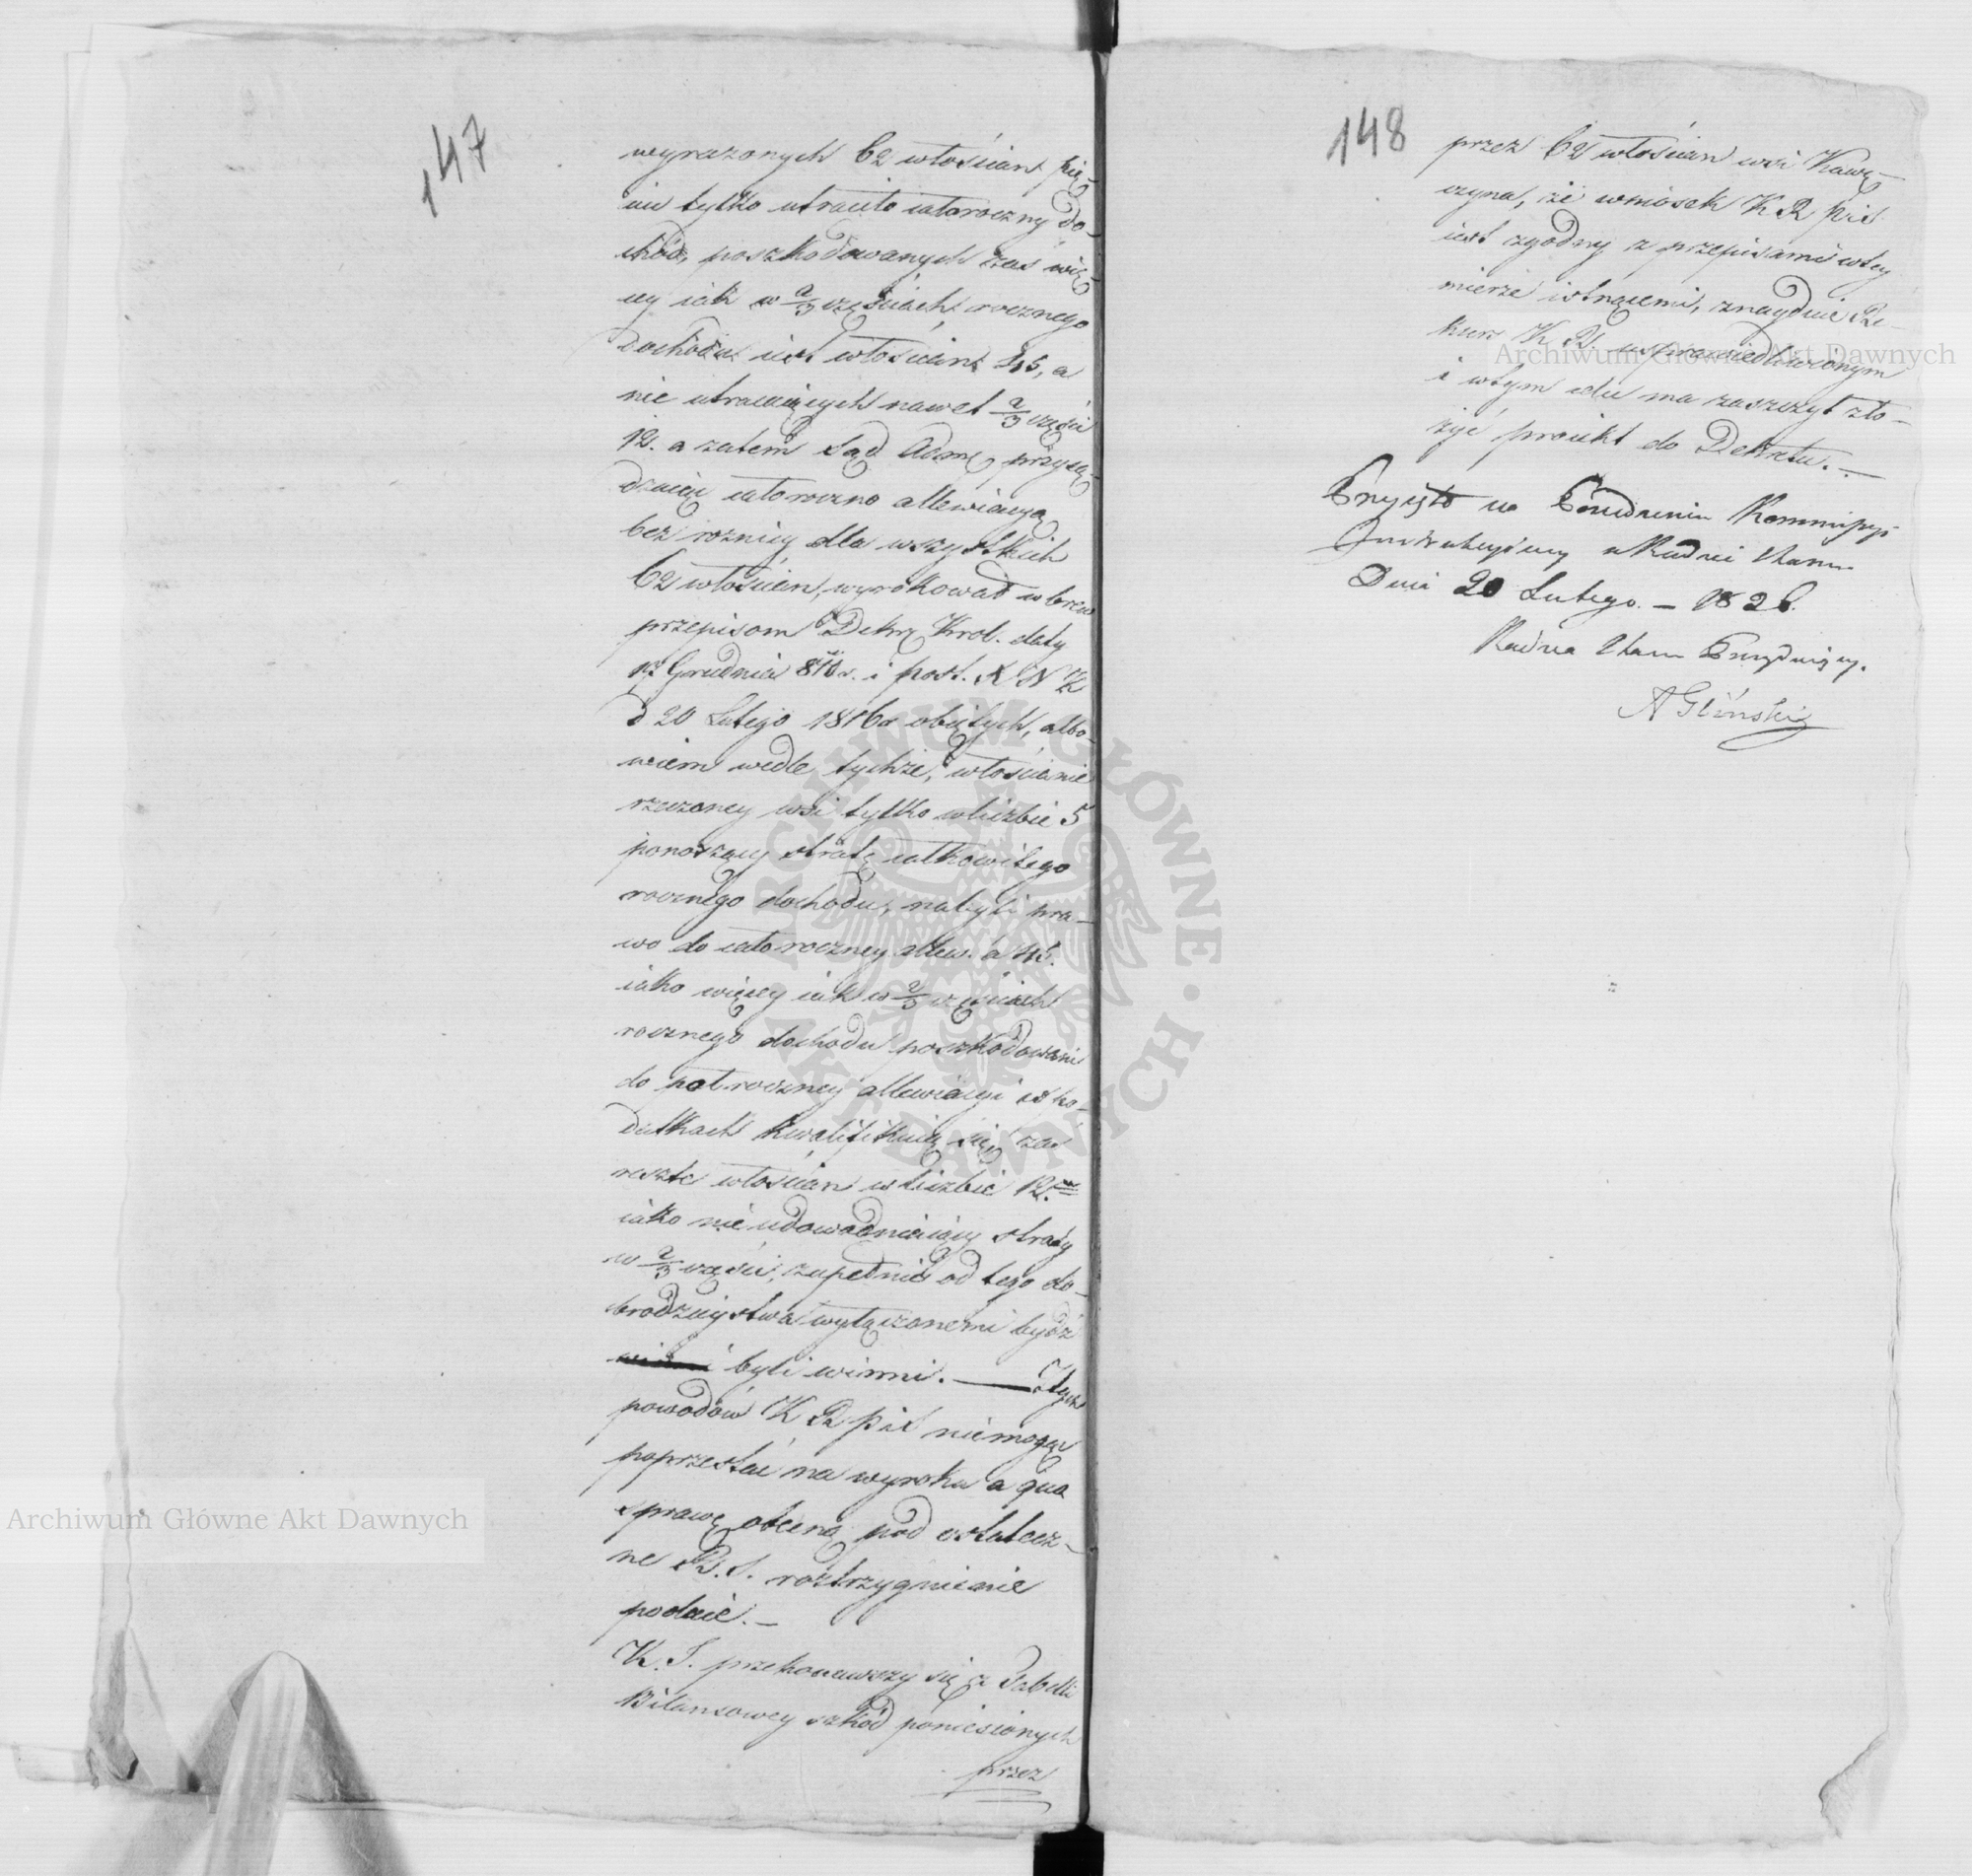 147
wyrazonych 62 włościan pię-
ciu tylko utraciło całoroczny do-
chód, poszkodowanych zas wię-
cey iak w 2/3 częściach rocznego
dochodu iest włościan 45, a
nie utracaiących nawet 2/3 części
12. a zatem Sąd Adm. przysą-
dzaiąc całoroczno allewiacyą
bez rożnicy dla wszystkich
62 włościan, wyrokował wbrew
przepisom Dekr. Krol. daty
Grudnia 810 r. i post. X N K
d 20 Lutego 1816 r obiętych, albo-
wiem wedle tychże, włościanie
rzeczoney wsi tylko w liczbie 5
ponoszący stratę całkowitego
rocznego dochodu, nabyli pra-
wo do całoroczney allew. a 45.
iako więcey iak w 2/3 częściach
rocznego dochodu poszkodowani
do pol roczney allewiacyi w po-
datkach kwalifikuią się, zas
reszte włościan w liczbie 12.
iako nie udowadniaiący straty
w 2/3 części, zupełnie od tego do-
brodzieystwa wyłączonemi bydź
byli winni. — Z tych
powodów K R pił niemogąc
poprzestać na wyroku a qua
sprawę obecną pod ostatecz-
ne R. S. roztrzygnienie
podaie. —
K. I. przekonawszy się z Tabelli
Bilansowey szkód poniesionych
przez
148
przez 62 włościan wsi Kawę-
czyna, że wniosek K R pił
iest zgodny z przepisami w tey
mierze istnącemi, znayduie Re-
kurs K R usprawiedliwionym
i w tym celu ma zaszczyt zło-
żyć proiekt do Dekretu. —
Przyięto na Posiedzeniu Kommissyi
Instrukcyiney w Radzie Stanu
Dnia 20 Lutego. — 1826.
Radca Stanu Prezyduiący.
A Gliński
Archiwum Główne Akt Dawnych
Archiwum Główne Akt Dawnych
ARCHIWUM GŁÓWNE · AKT DAWNYCH ·